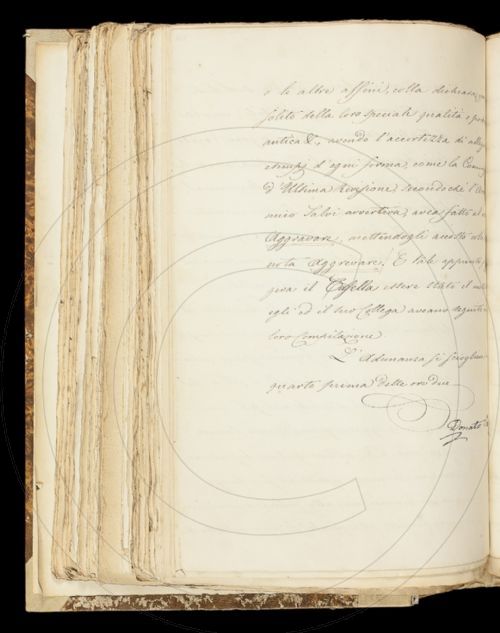 e le altre affini, colla dichiara
solito della loro speciale qualità e
antica &., avendo l'accortezza di
esempj d'ogni forma, come la
d'Ultima Revisione, secondochè l'
Salvi avvertiva, avea fatto
Aggravare, mettendogli accosto
nota Aggrevare. E tale appunto
il Casella essere stato il
egli ed il suo Collega aveano seguito
loro Compilazione.
L'Adunanza si sciolse
quarto prima delle ore due
Donato